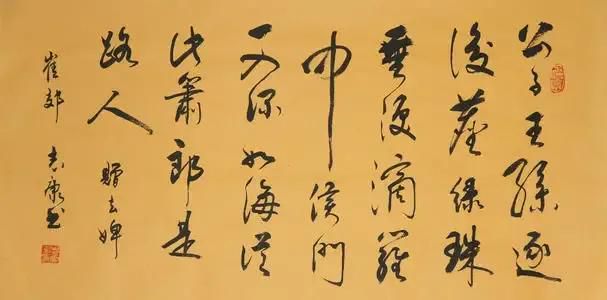 公子王孫逐
後塵綠珠
垂淚滴羅
巾侯門
一入深如海從
此蕭郎是
路人 贈去婢
崔郊 志康書